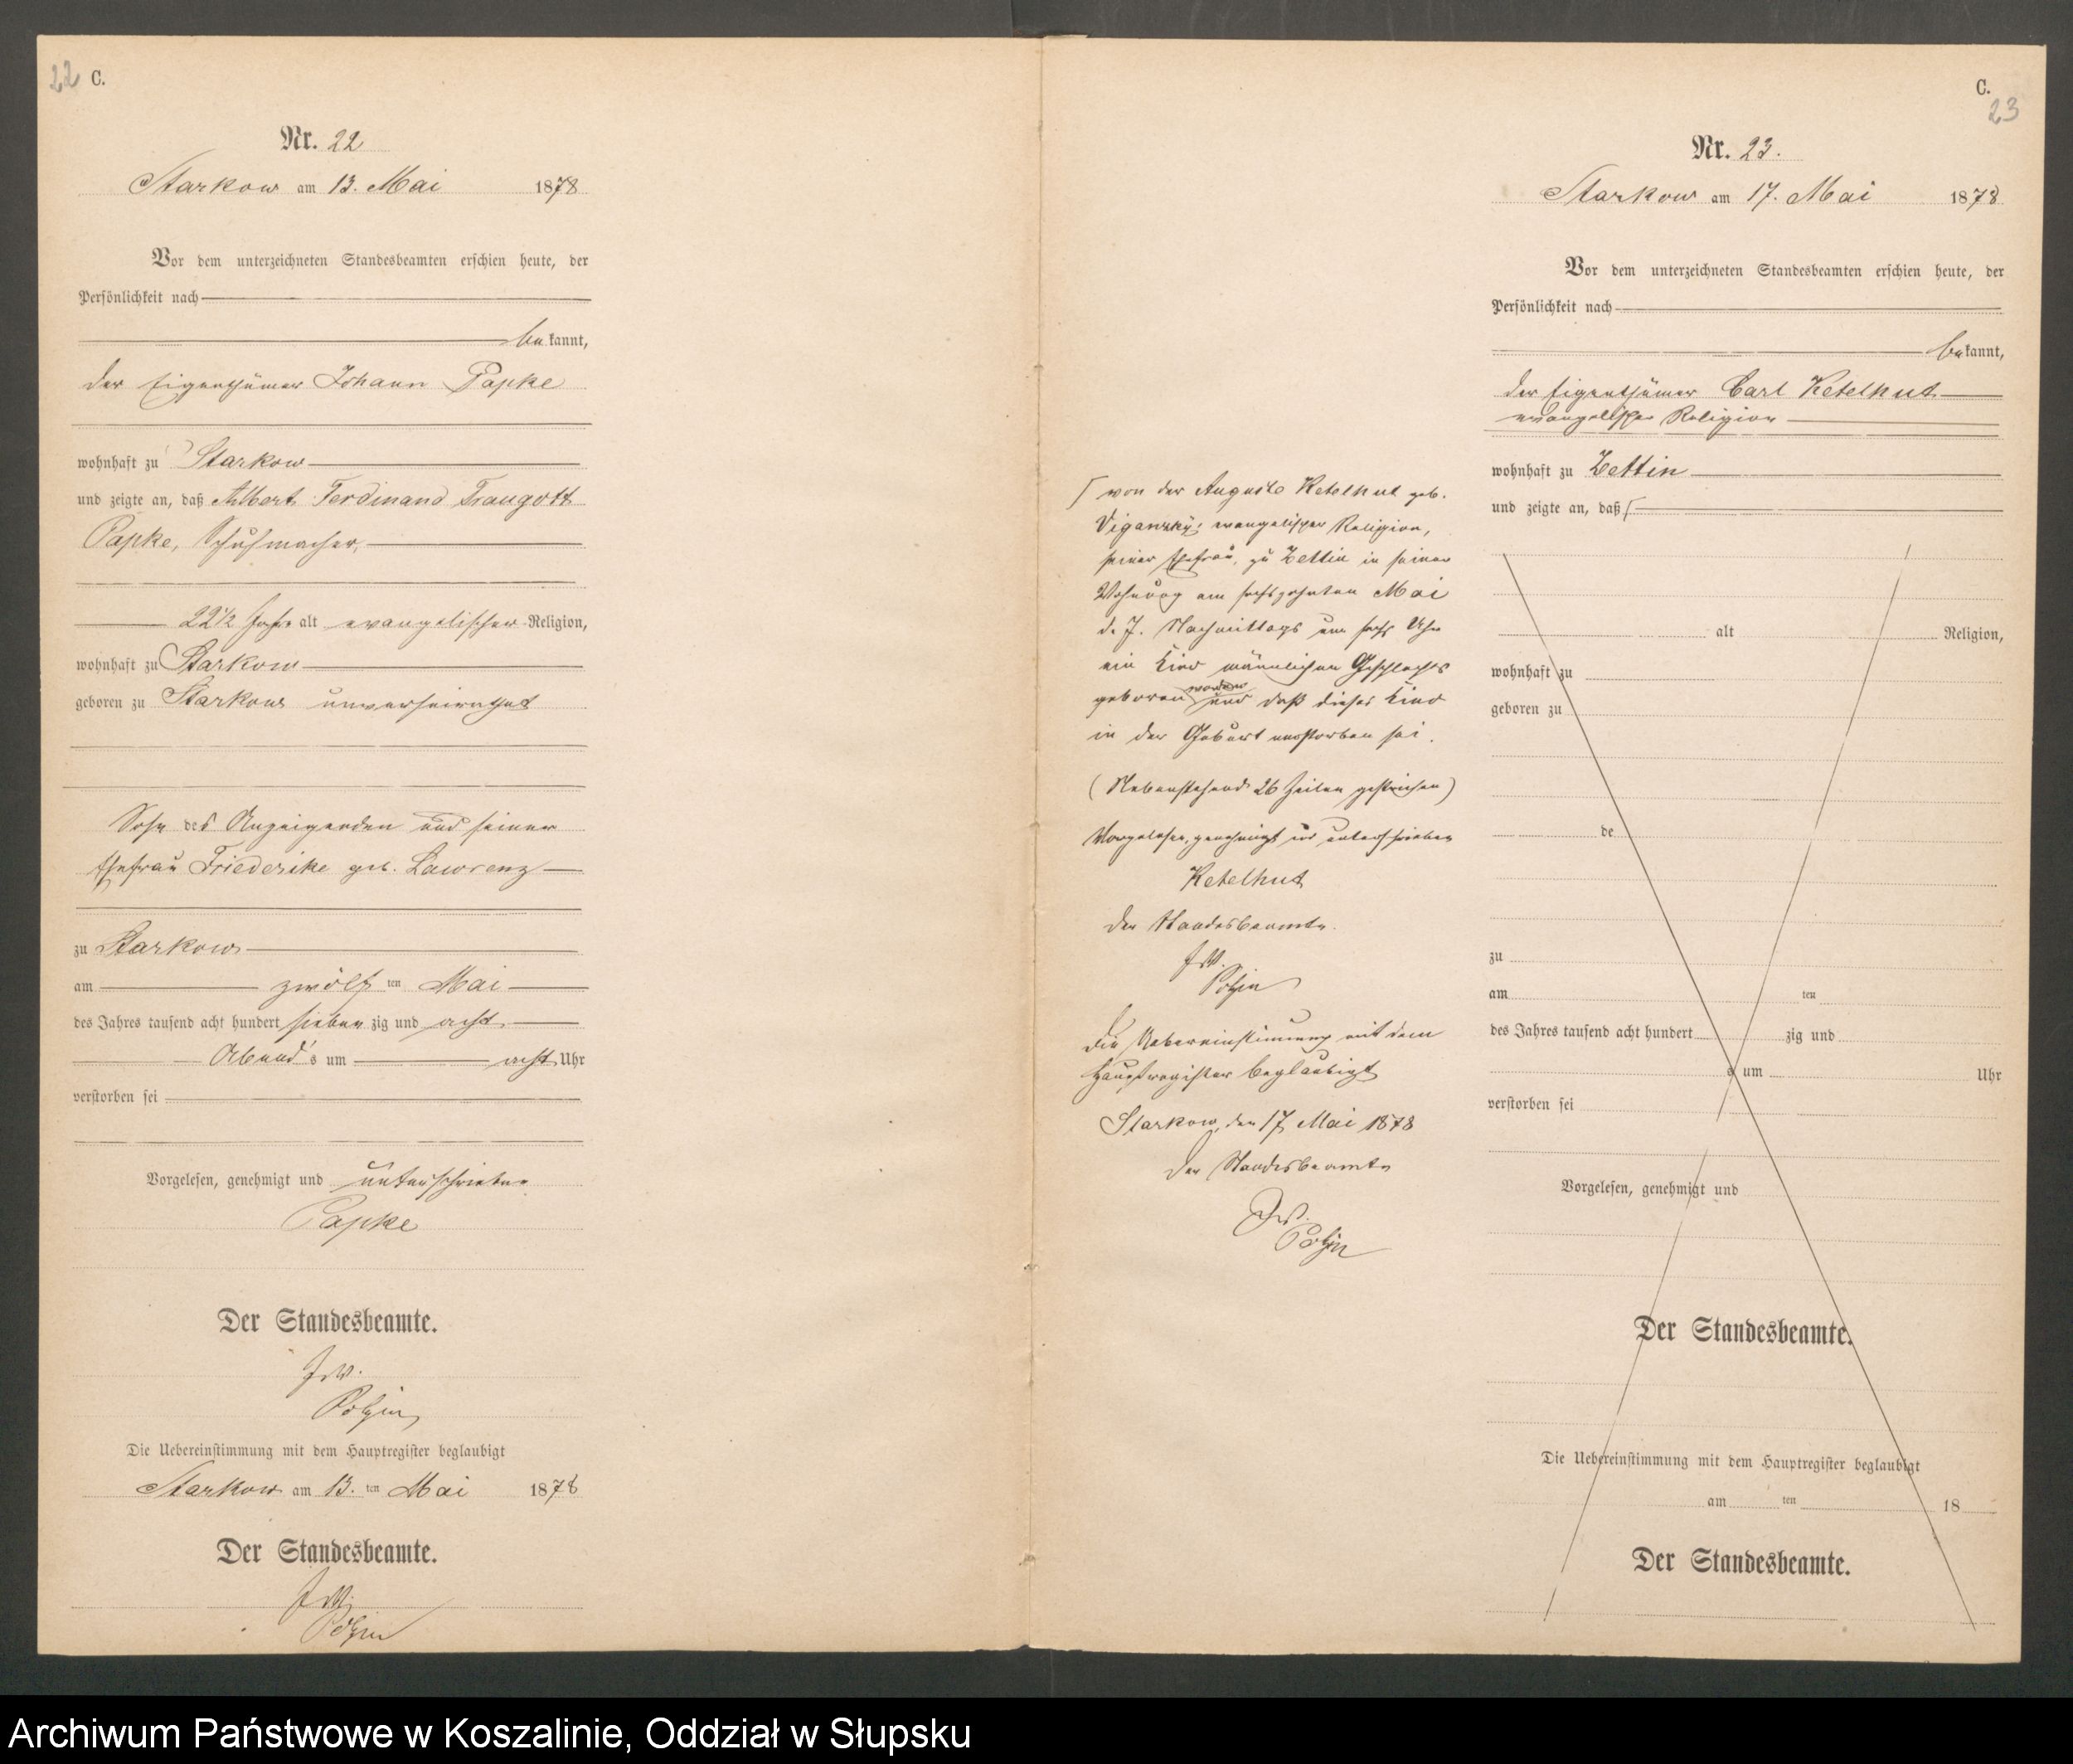 22 C.
Nr. 22
Starkow am 13. Mai 1878
Vor dem unterzeichneten Standesbeamten erschien heute, der
Persönlichkeit nach
bekannt,
der Eigenthümer Johann Papke
wohnhaft zu Starkow
und zeigte an, daß Albert Ferdinand Traugott
Papke, Schuhmacher,
22 1/2 Jahre alt evangelischer Religion,
wohnhaft zu Starkow
geboren zu Starkow unverheirathet
Sohn des Anzeigenden und seiner
Ehefrau Friederike geb. Lawrenz
zu Starkow
am zwölf ten Mai
des Jahres tausend acht hundert sieben zig und acht
Abends um acht Uhr
verstorben sei
Vorgelesen, genehmigt und unterschrieben
Papke
Der Standesbeamte.
J. V.
Polzin
Die Uebereinstimmung mit dem Hauptregister beglaubigt
Starkow am 13. ten Mai 1878
Der Standesbeamte.
J. V.
Polzin
C.
23
Nr. 23.
Starkow am 17. Mai 1878
Vor dem unterzeichneten Standesbeamten erschien heute, der
Persönlichkeit nach
bekannt,
der Eigenthümer Carl Ketelhut
evangelischer Religion
wohnhaft zu Zettin
und zeigte an, daß
von der Auguste Ketelhut geb.
Viganzky, evangelischer Religion,
seiner Ehefrau, zu Zettin in seiner
Wohnung am sechszehnten Mai
d. J. Nachmittags um sechs Uhr
ein Kind männlichen Geschlechts
geboren worden und daß dieses Kind
in der Geburt verstorben sei.
(Nebenstehend 26 Zeilen gestrichen)
Vorgelesen, genehmigt und unterschrieben
Ketelhut
Der Standesbeamte.
J. V.
Polzin
Die Uebereinstimmung mit dem
Hauptregister beglaubigt
Starkow, den 17 Mai 1878
Der Standesbeamte
J. V.
Polzin
alt Religion,
wohnhaft zu
geboren zu
de
zu
am ten
des Jahres tausend acht hundert zig und
s um Uhr
verstorben sei
Vorgelesen, genehmigt und
Der Standesbeamte.
Die Uebereinstimmung mit dem Hauptregister beglaubigt
am ten 18
Der Standesbeamte.
Archiwum Państwowe w Koszalinie, Oddział w Słupsku